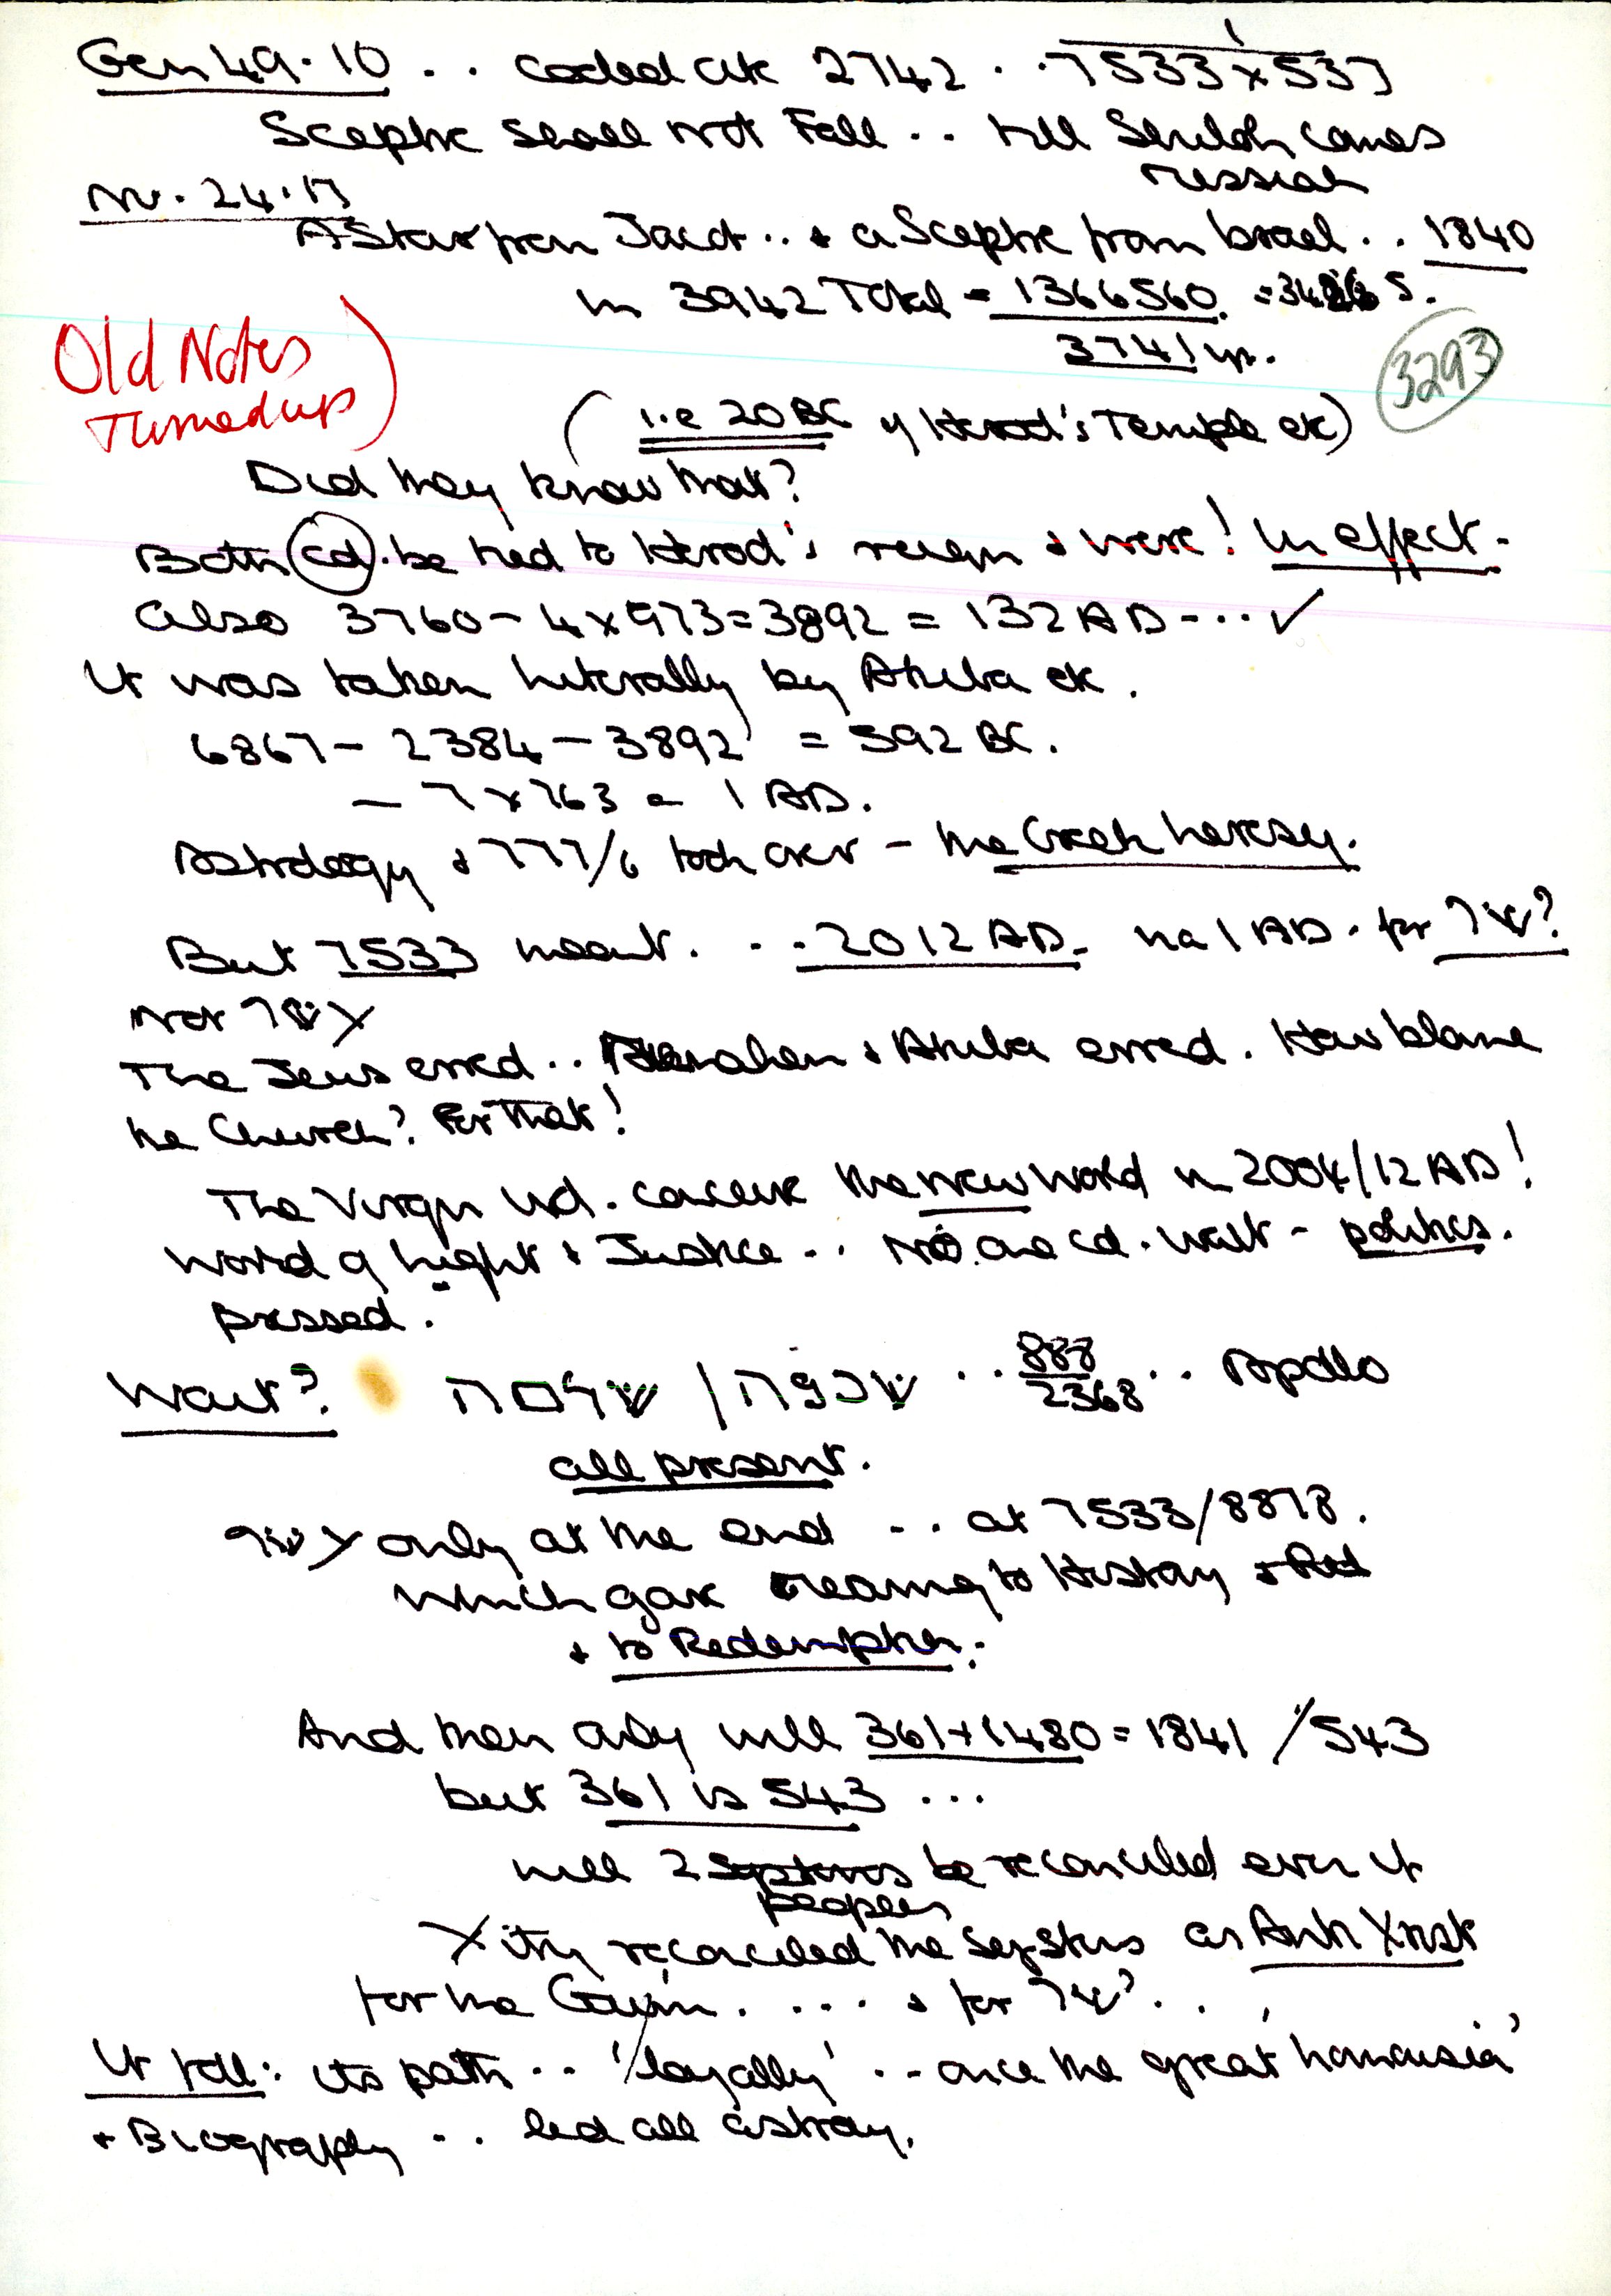 Gen 49.10 . . coded at 2742 . . 7533 x 537
Sceptre shall not Fall . . till Shiloh comes
Messiah
Nu. 24.17
A Star from Jacob .. + a Sceptre from Israel . . 1840
in 3942 Total = 1366560.
3741 yr.
3293
Old Notes
Turned up
(i.e 20 BC of Herod's Temple etc)
Did they know that?
Both cd. be tied to Herod's reign & were! In effect.
Also 3760 - 4x973 = 3892 = 132 AD - ... ✓
It was taken literally by Akiba etc.
6867 - 2384 - 3892 = 592 BC.
- 7 x 763 = 1 AD.
Astrology + 777/6 took over - the Greek heresy.
But 7533 meant. . . - 2012 AD. not 1 AD. for ישו?
Not
The Jews erred .. & Akiba erred. How blame
the Church? For That!
The Virgin wd. conceive the new World in 2004/12 AD!
World of Light & Justice .. No one cd. wait - politics.
pressed.
Wait? שלמה / . . 888/2368 . . Apollo
all present.
only at the end .. at 7533/8878.
which gave meaning to History
+ to Redemption.
And then only will 361+1480 = 1841 /543
but 361 is 543 ...
will 2 peoples be reconciled even if
Xity reconciled the systems as Anti Xrist
for the Goyim. ... & for ישו?..
It fell: its path .. 'loyally' .. once the great 'homousia'
+ Biography .. led all astray.